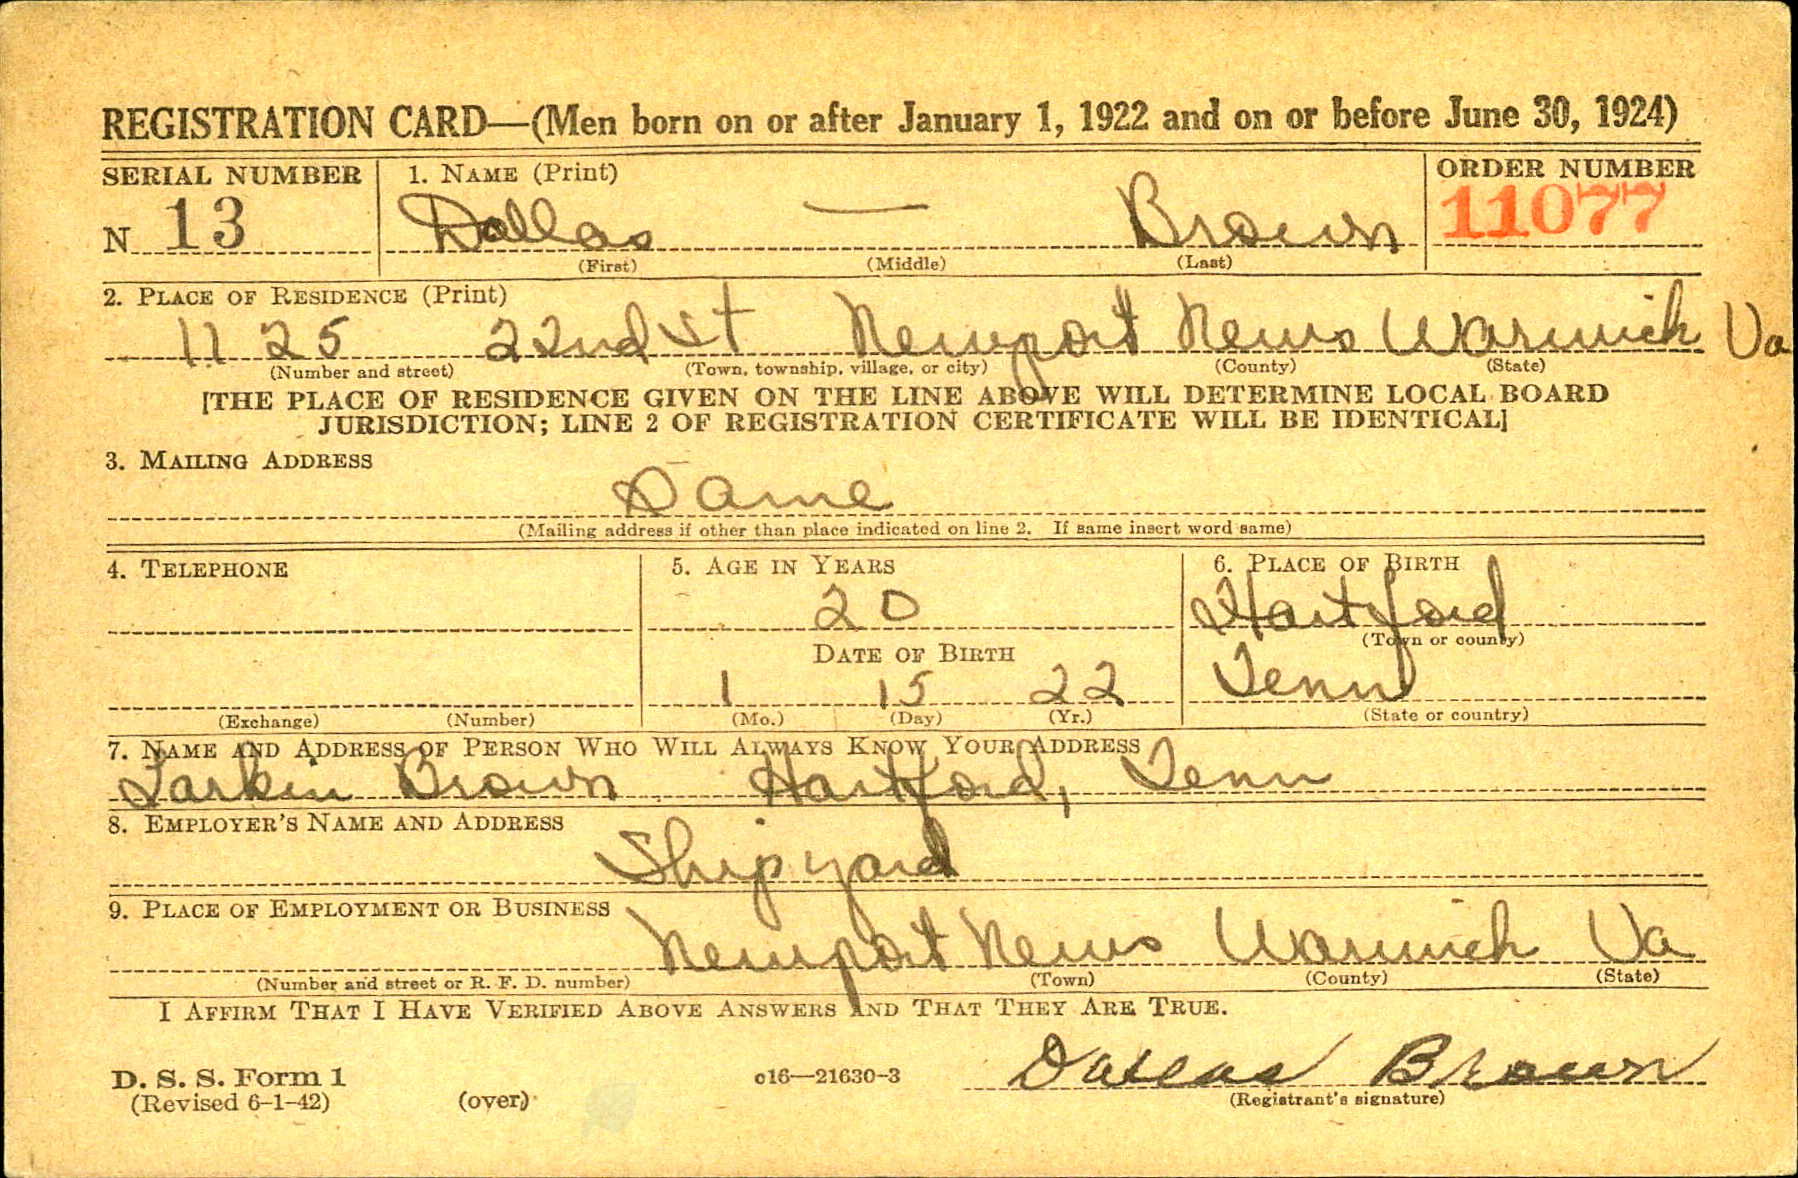 REGISTRATION CARD—(Men born on or after January 1, 1922 and on or before June 30, 1924)
SERIAL NUMBER 1. NAME (Print) ORDER NUMBER
N 13 Dallas — Brown 11077
(First) (Middle) (Last)
2. PLACE OF RESIDENCE (Print)
11 25 22nd St Newport News Warwick Va
(Number and street) (Town, township, village, or city) (County) (State)
[THE PLACE OF RESIDENCE GIVEN ON THE LINE ABOVE WILL DETERMINE LOCAL BOARD
JURISDICTION; LINE 2 OF REGISTRATION CERTIFICATE WILL BE IDENTICAL]
3. MAILING ADDRESS
Same
(Mailing address if other than place indicated on line 2. If same insert word same)
4. TELEPHONE 5. AGE IN YEARS 6. PLACE OF BIRTH
20 Hartford
(Town or county)
DATE OF BIRTH
1 15 22 Tenn
(Exchange) (Number) (Mo.) (Day) (Yr.) (State or country)
7. NAME AND ADDRESS OF PERSON WHO WILL ALWAYS KNOW YOUR ADDRESS
Larkin Brown Hartford, Tenn
8. EMPLOYER'S NAME AND ADDRESS
Shipyard
9. PLACE OF EMPLOYMENT OR BUSINESS
Newport News Warwick Va
(Number and street or R. F. D. number) (Town) (County) (State)
I AFFIRM THAT I HAVE VERIFIED ABOVE ANSWERS AND THAT THEY ARE TRUE.
Dallas Brown
D. S. S. Form 1 c16—21630-3
(Revised 6-1-42) (over) (Registrant's signature)